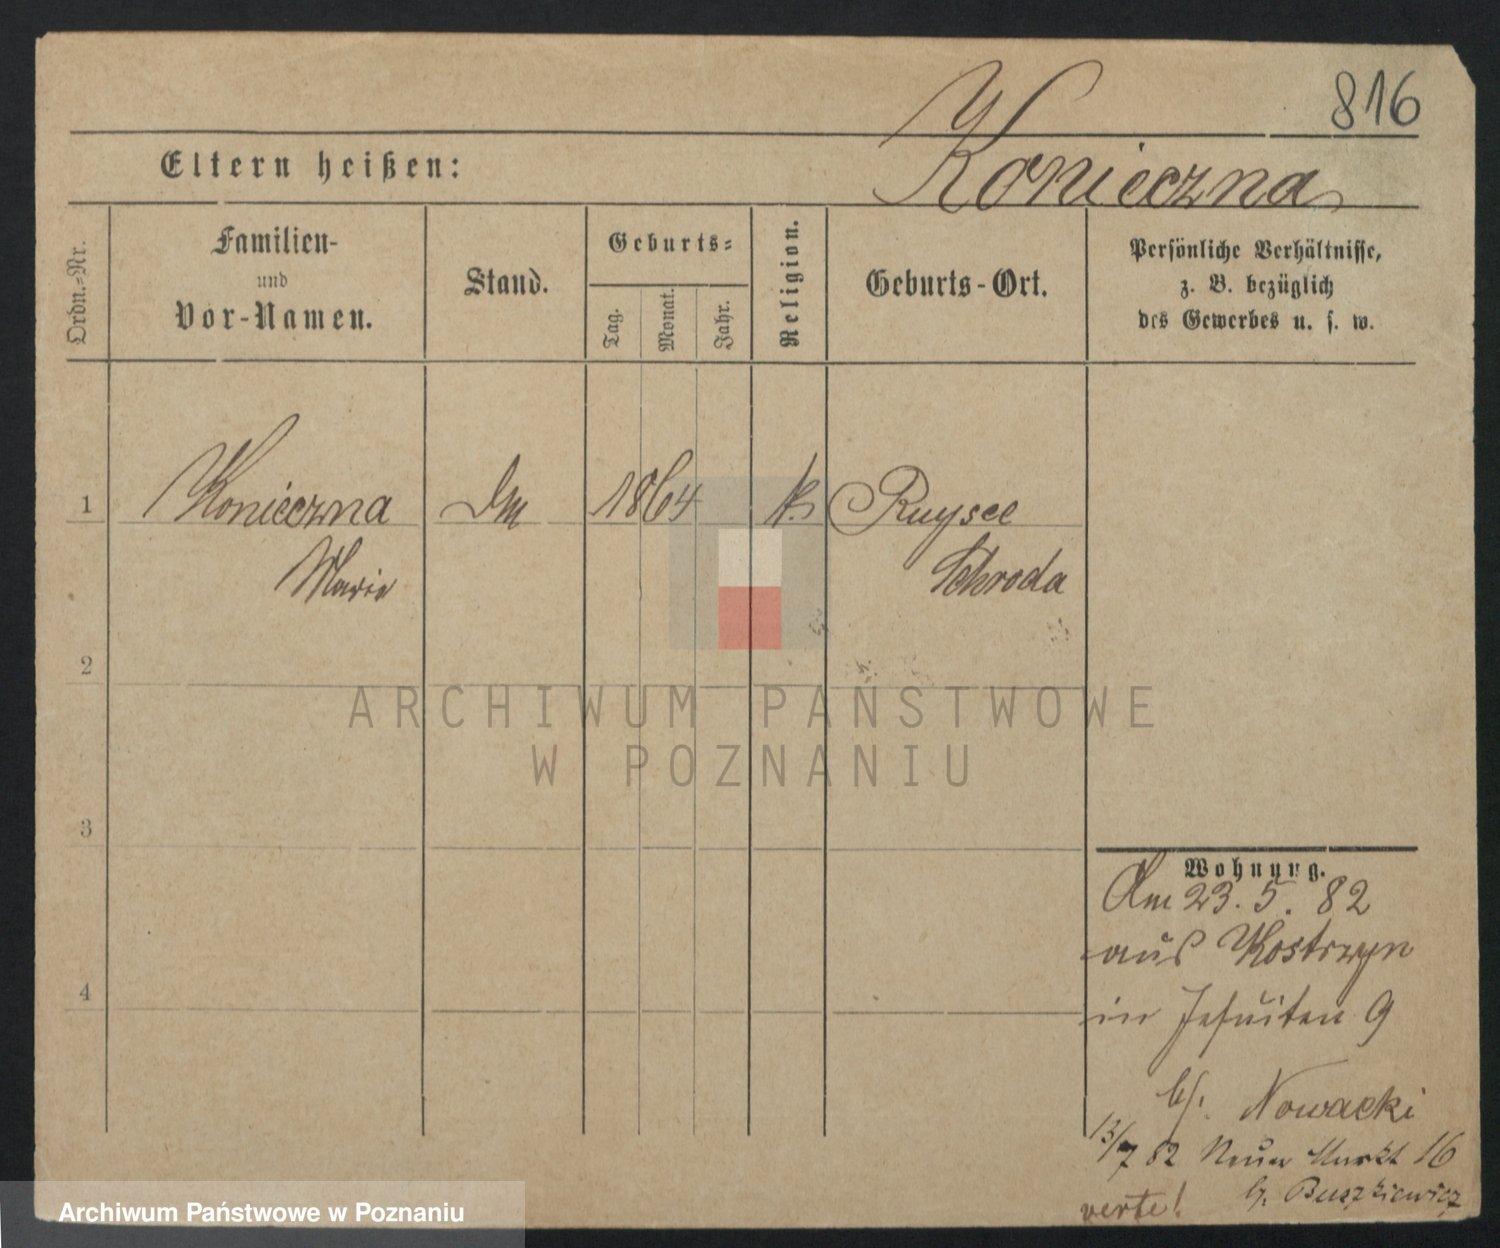 816
Konieczna
Eltern heißen:
Ordn.-Nr.
Familien-
und
Vor-Namen.
Stand.
Geburts-
Tag.
Monat.
Jahr.
Religion.
Geburts-Ort.
Persönliche Verhältnisse,
z. B. bezüglich
des Gewerbes u. s. w.
1
Konieczna
Marie
Dm
1864
k.
Ruysce
Schroda
2
3
4
Wohnung.
Am 23. 5. 82
aus Kostrzyn
in Jesuiten 9
bj. Nowacki
13/7 82 Neuer Markt 16
bj. Buszkiewicz
verte!
ARCHIWUM PAŃSTWOWE
W POZNANIU
Archiwum Państwowe w Poznaniu